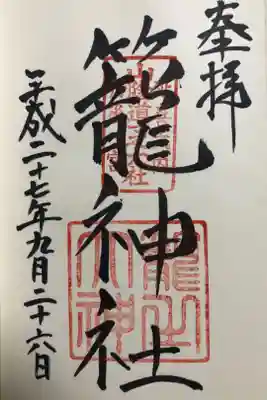 奉拝
籠神社
平成二十七年九月二十六日
籠之大神